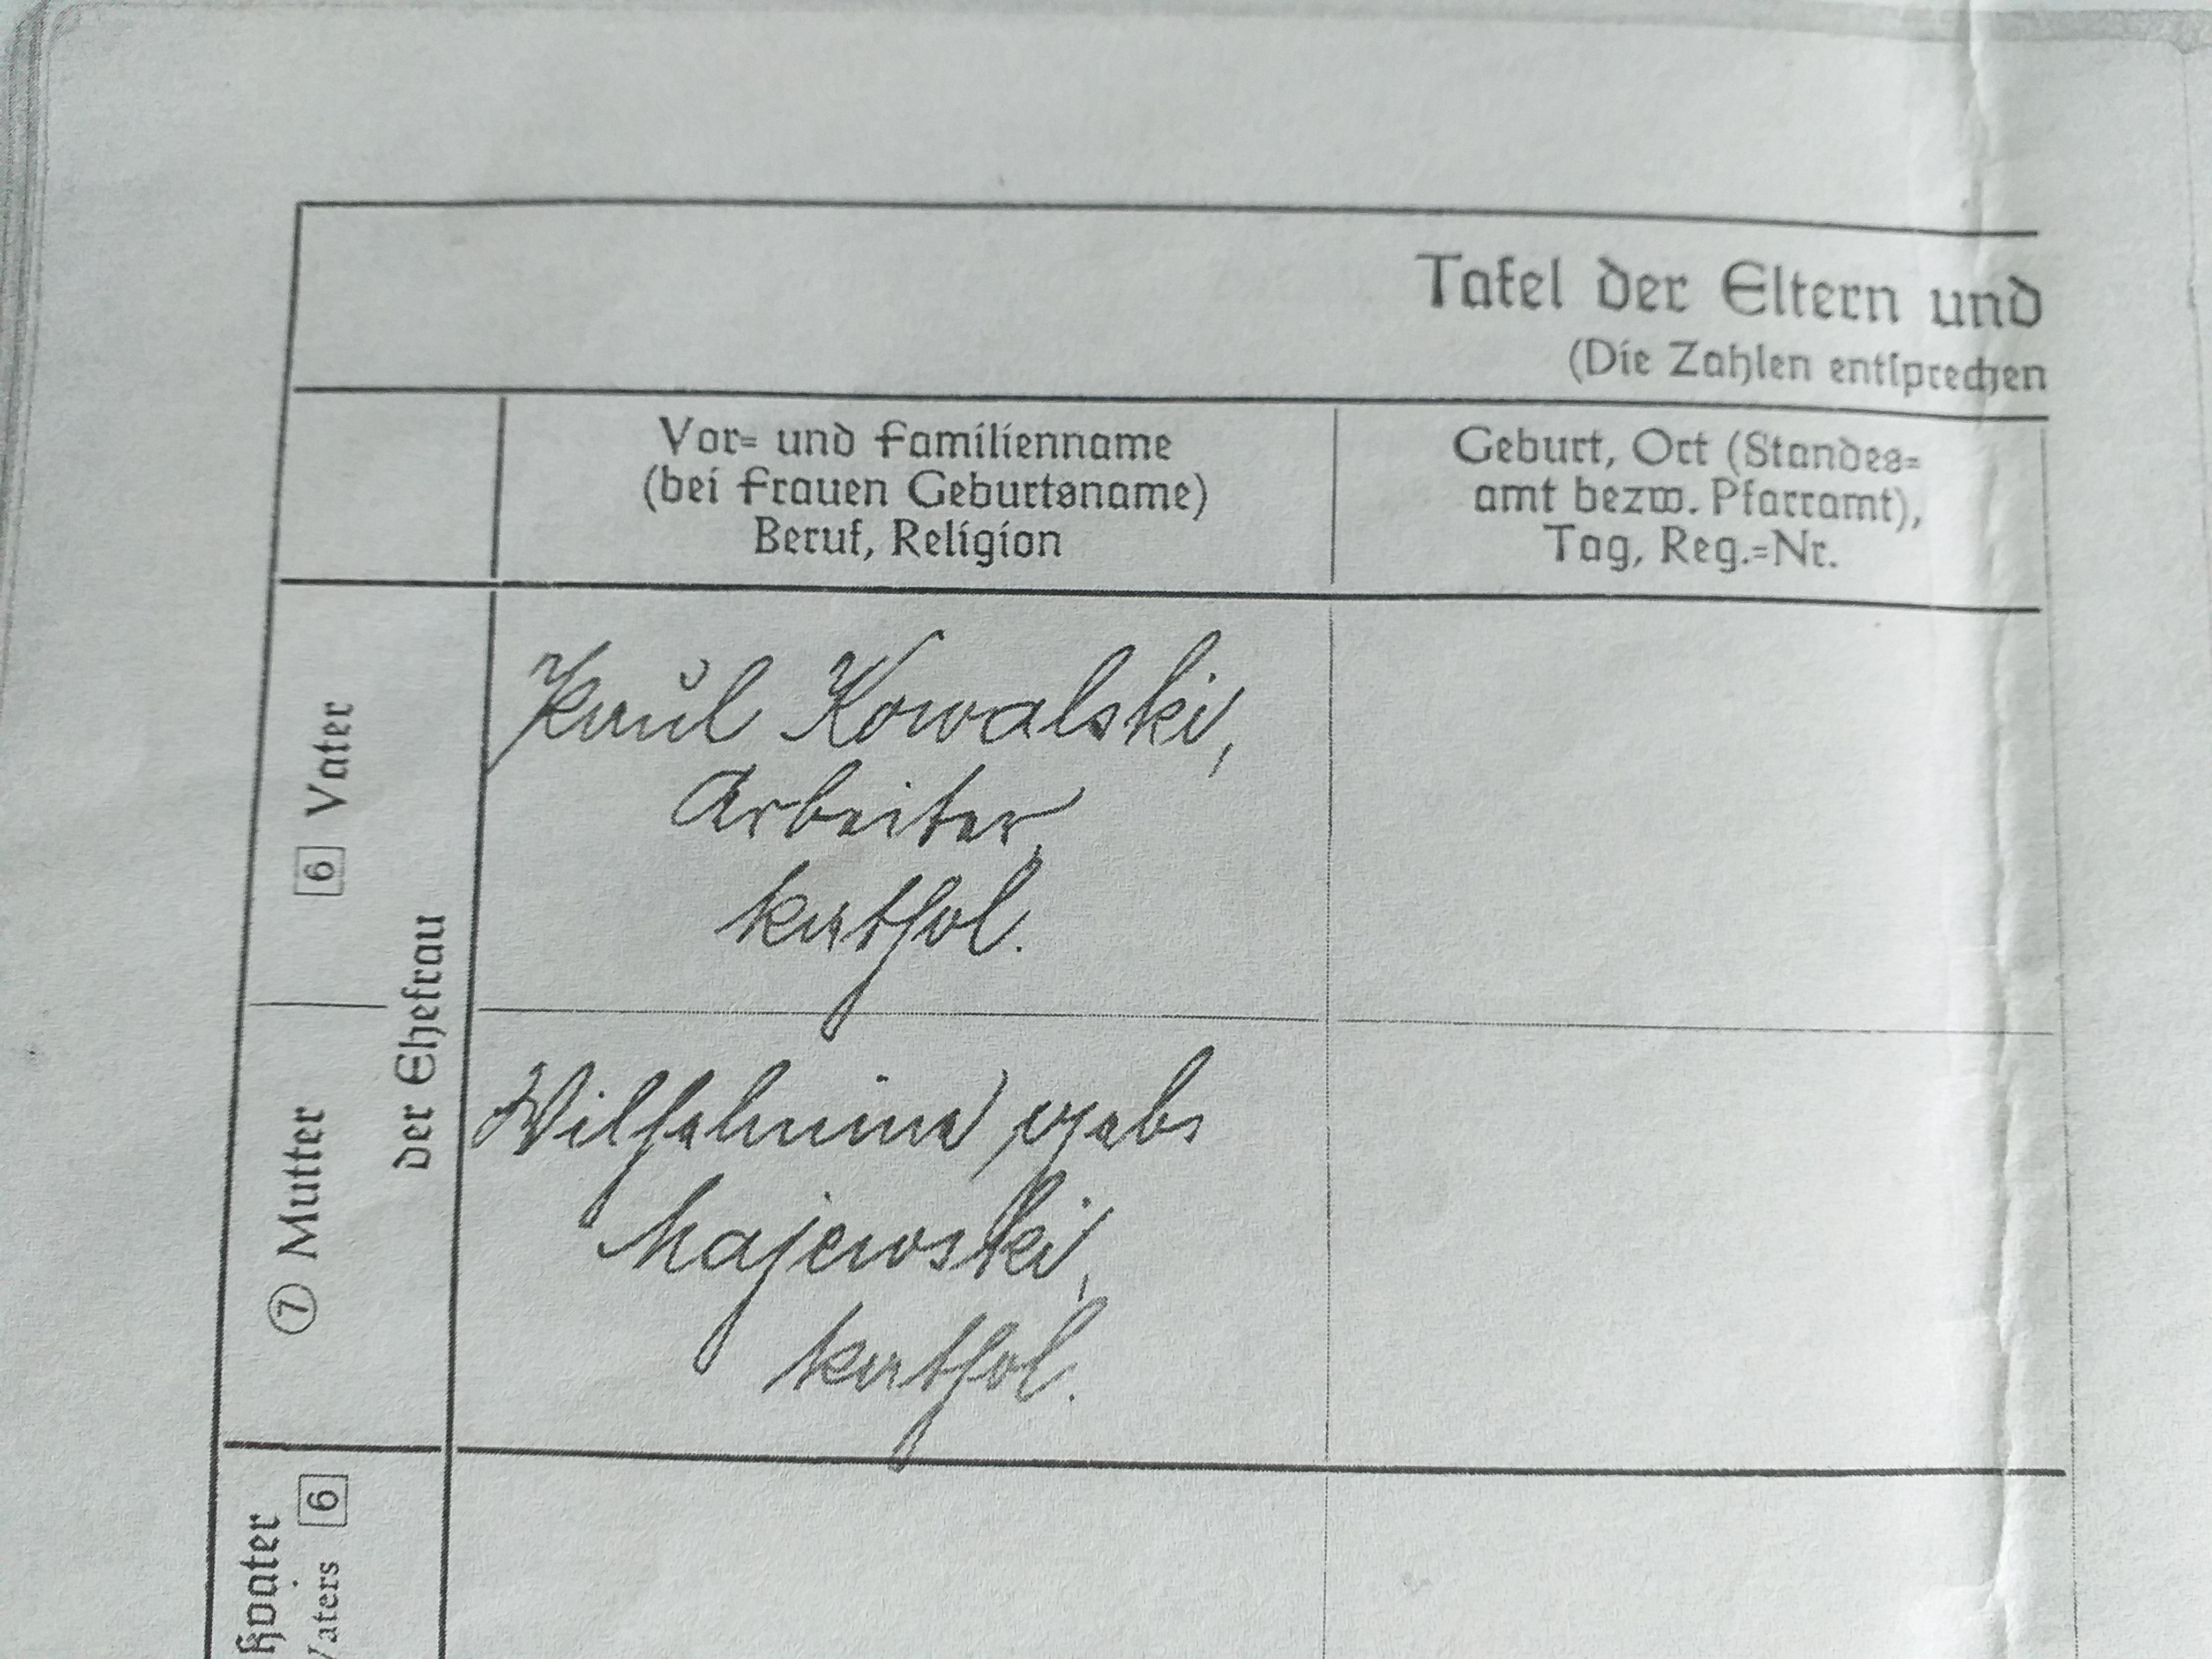 Tafel der Eltern und
(Die Zahlen entsprechen
Vor- und Familienname
(bei Frauen Geburtsname)
Beruf, Religion
Geburt, Ort (Standes-
amt bezw. Pfarramt),
Tag, Reg.-Nr.
6 Vater
der Ehefrau
Paul Kowalski,
Arbeiter,
kathol.
7 Mutter
Wilhelmina
Majewski,
kathol.
ßvater
Vaters 6